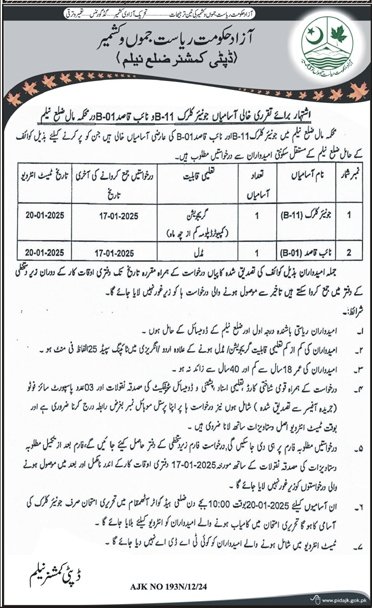 آزاد حکومت ریاست جموں و کشمیر کی تین ترجیحات تحریک آزادی کشمیر، گڈ گورننس، تعمیر و ترقی
آزاد حکومت ریاست جموں و کشمیر
(ڈپٹی کمشنر ضلع نیلم)
اشتہار برائے تقرری خالی آسامیاں جونیئر کلرک B-11 و نائب قاصد B-01 در محکمہ مال ضلع نیلم
محکمہ مال ضلع نیلم میں جونیئر کلرک B-11 اور نائب قاصد B-01 کی عارضی آسامیاں خالی ہیں جن کو پر کرنے کیلئے بذیل کوائف
کے حامل ضلع نیلم کے مستقل سکونتی امیدواران سے درخواستیں مطلوب ہیں۔
نمبر شمار نام آسامیاں تعداد آسامیاں تعلیمی قابلیت درخواستیں جمع کروانے کی آخری تاریخ تاریخ ٹیسٹ انٹرویو
1 جونیئر کلرک (B-11) 1 گریجویشن (کمپیوٹر ڈپلومہ کم از کم چھ ماہ) 17-01-2025 20-01-2025
2 نائب قاصد (B-01) 1 مڈل 17-01-2025 20-01-2025
جملہ امیدواران بذیل کوائف کی تصدیق شدہ کاپیاں درخواست کے ہمراہ مقررہ تاریخ تک دفتری اوقات کار کے دوران زیر دستخطی
کے دفتر میں جمع کروا سکتے ہیں تاخیر سے موصول ہونے والی درخواست ہا کو زیر غور نہیں لایا جائے گا۔
شرائط:
۱۔ امیدواران ریاستی باشندہ درجہ اول اور ضلع نیلم کے ڈومیسائل کے حامل ہوں۔
۲۔ امیدواران کی کم از کم تعلیمی قابلیت گریجویشن/مڈل ہونے کے علاوہ اردو انگریزی میں ٹائپنگ سپیڈ 25 الفاظ فی منٹ ہو۔
۳۔ امیدواران کی عمر 18 سال سے کم اور 40 سال سے زائد نہ ہو۔
۴۔ درخواست کے ہمراہ قومی شناختی کارڈ تعلیمی اسناد پشتنی و ڈومیسائل سرٹیفکیٹ کی مصدقہ نقولات اور 03 عدد پاسپورٹ سائز فوٹو
(جریدہ آفیسر سے تصدیق شدہ) شامل ہوں نیز درخواست ہا پر اپنا پرسنل موبائل نمبر بغرض رابطہ درج کرنا ضروری ہے اور
بوقت ٹیسٹ انٹرویو اصل دستاویزات ساتھ لانا ضروری ہیں۔
۵۔ درخواستیں مطلوبہ فارم پر ہی دی جا سکیں گی، درخواست فارم زیر دستخطی کے دفتر حاصل کیئے جائیں گے، فارم بعد از تکمیل مطلوبہ
دستاویزات کی مصدقہ نقولات کے ساتھ مورخہ 17-01-2025 دفتری اوقات کار کے اندر نامکمل اور بعد میں موصول ہونے
والی درخواستوں کو زیر غور نہیں لایا جائے گا۔
۶۔ ان آسامیوں کیلئے 20-01-2025 بوقت 10:00 بجے دن ضلعی ہیڈ کوارٹر آٹھمقام میں تحریری امتحان صرف جونیئر کلرک کی
آسامی کا ہوگا تحریری امتحان میں کامیاب ہونے والے امیدواران کو انٹرویو کیلئے بلایا جائے گا۔
۷۔ ٹیسٹ انٹرویو میں شامل ہونے والے امیدواران کو کوئی ٹی اے ڈی اے نہیں دیا جائے گا۔
ڈپٹی کمشنر نیلم
AJK NO 193N/12/24
www.pidajk.gok.pk